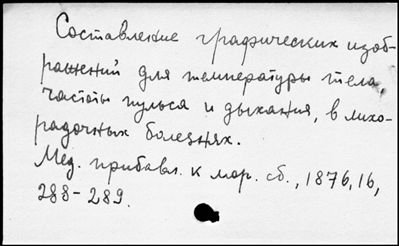 Составление графических изоб-
ражений для температуры тела,
частоты пульса и дыхания, в лихо-
радочных болезнях.
Мед. прибавл. к мор. сб., 1876, 16,
288-289.